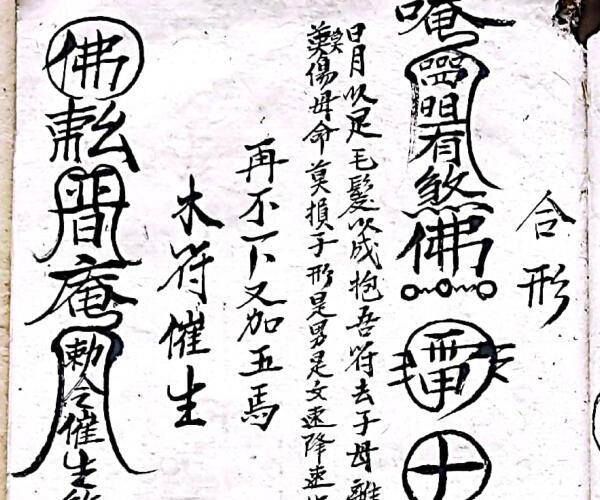 合形
唵
有煞佛
日月以足毛髮以成抱吾符去子母離
莫傷母命莫損子形是男是女速降速
再不下又加五焉
木符催生
佛敕普庵
勅令催生